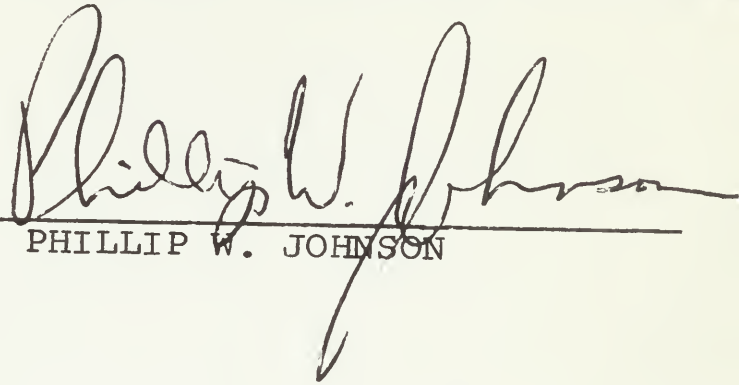 Phillip W. Johnson
PHILLIP W. JOHNSON